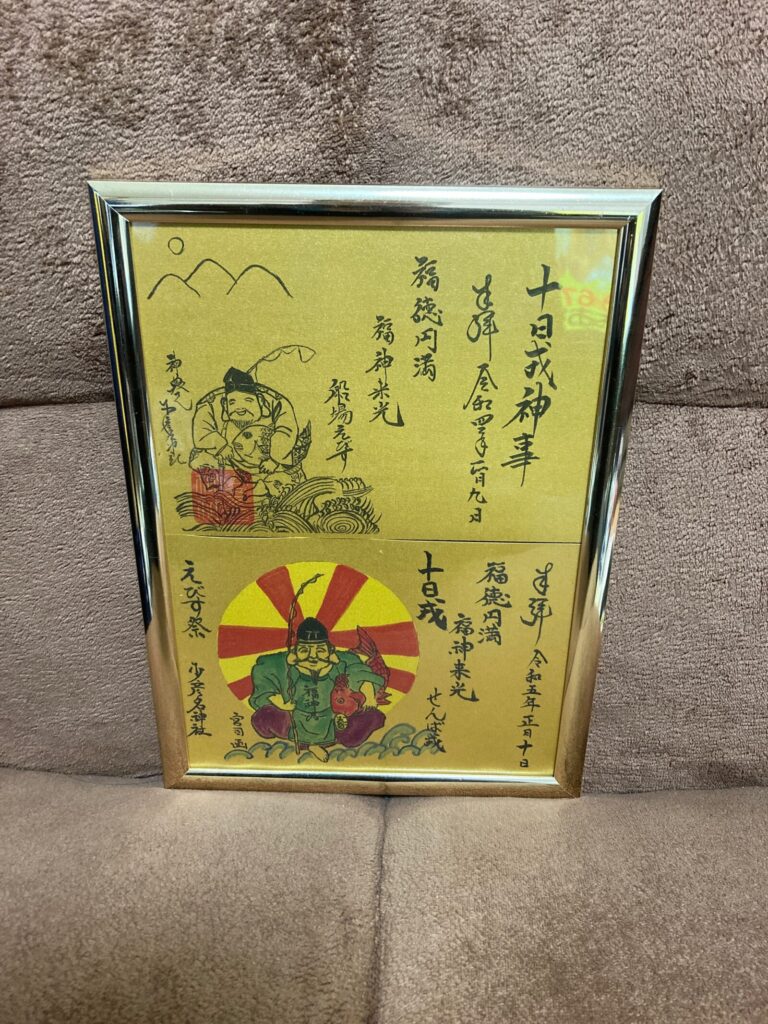 十日戎神事
奉拝 令和四年一月九日
福徳円満
福神来光
船場えびす
奉拝 令和五年正月十日
福徳円満
福神来光
せんば戎
十日戎
福神
宮司画
えびす祭
少彦名神社